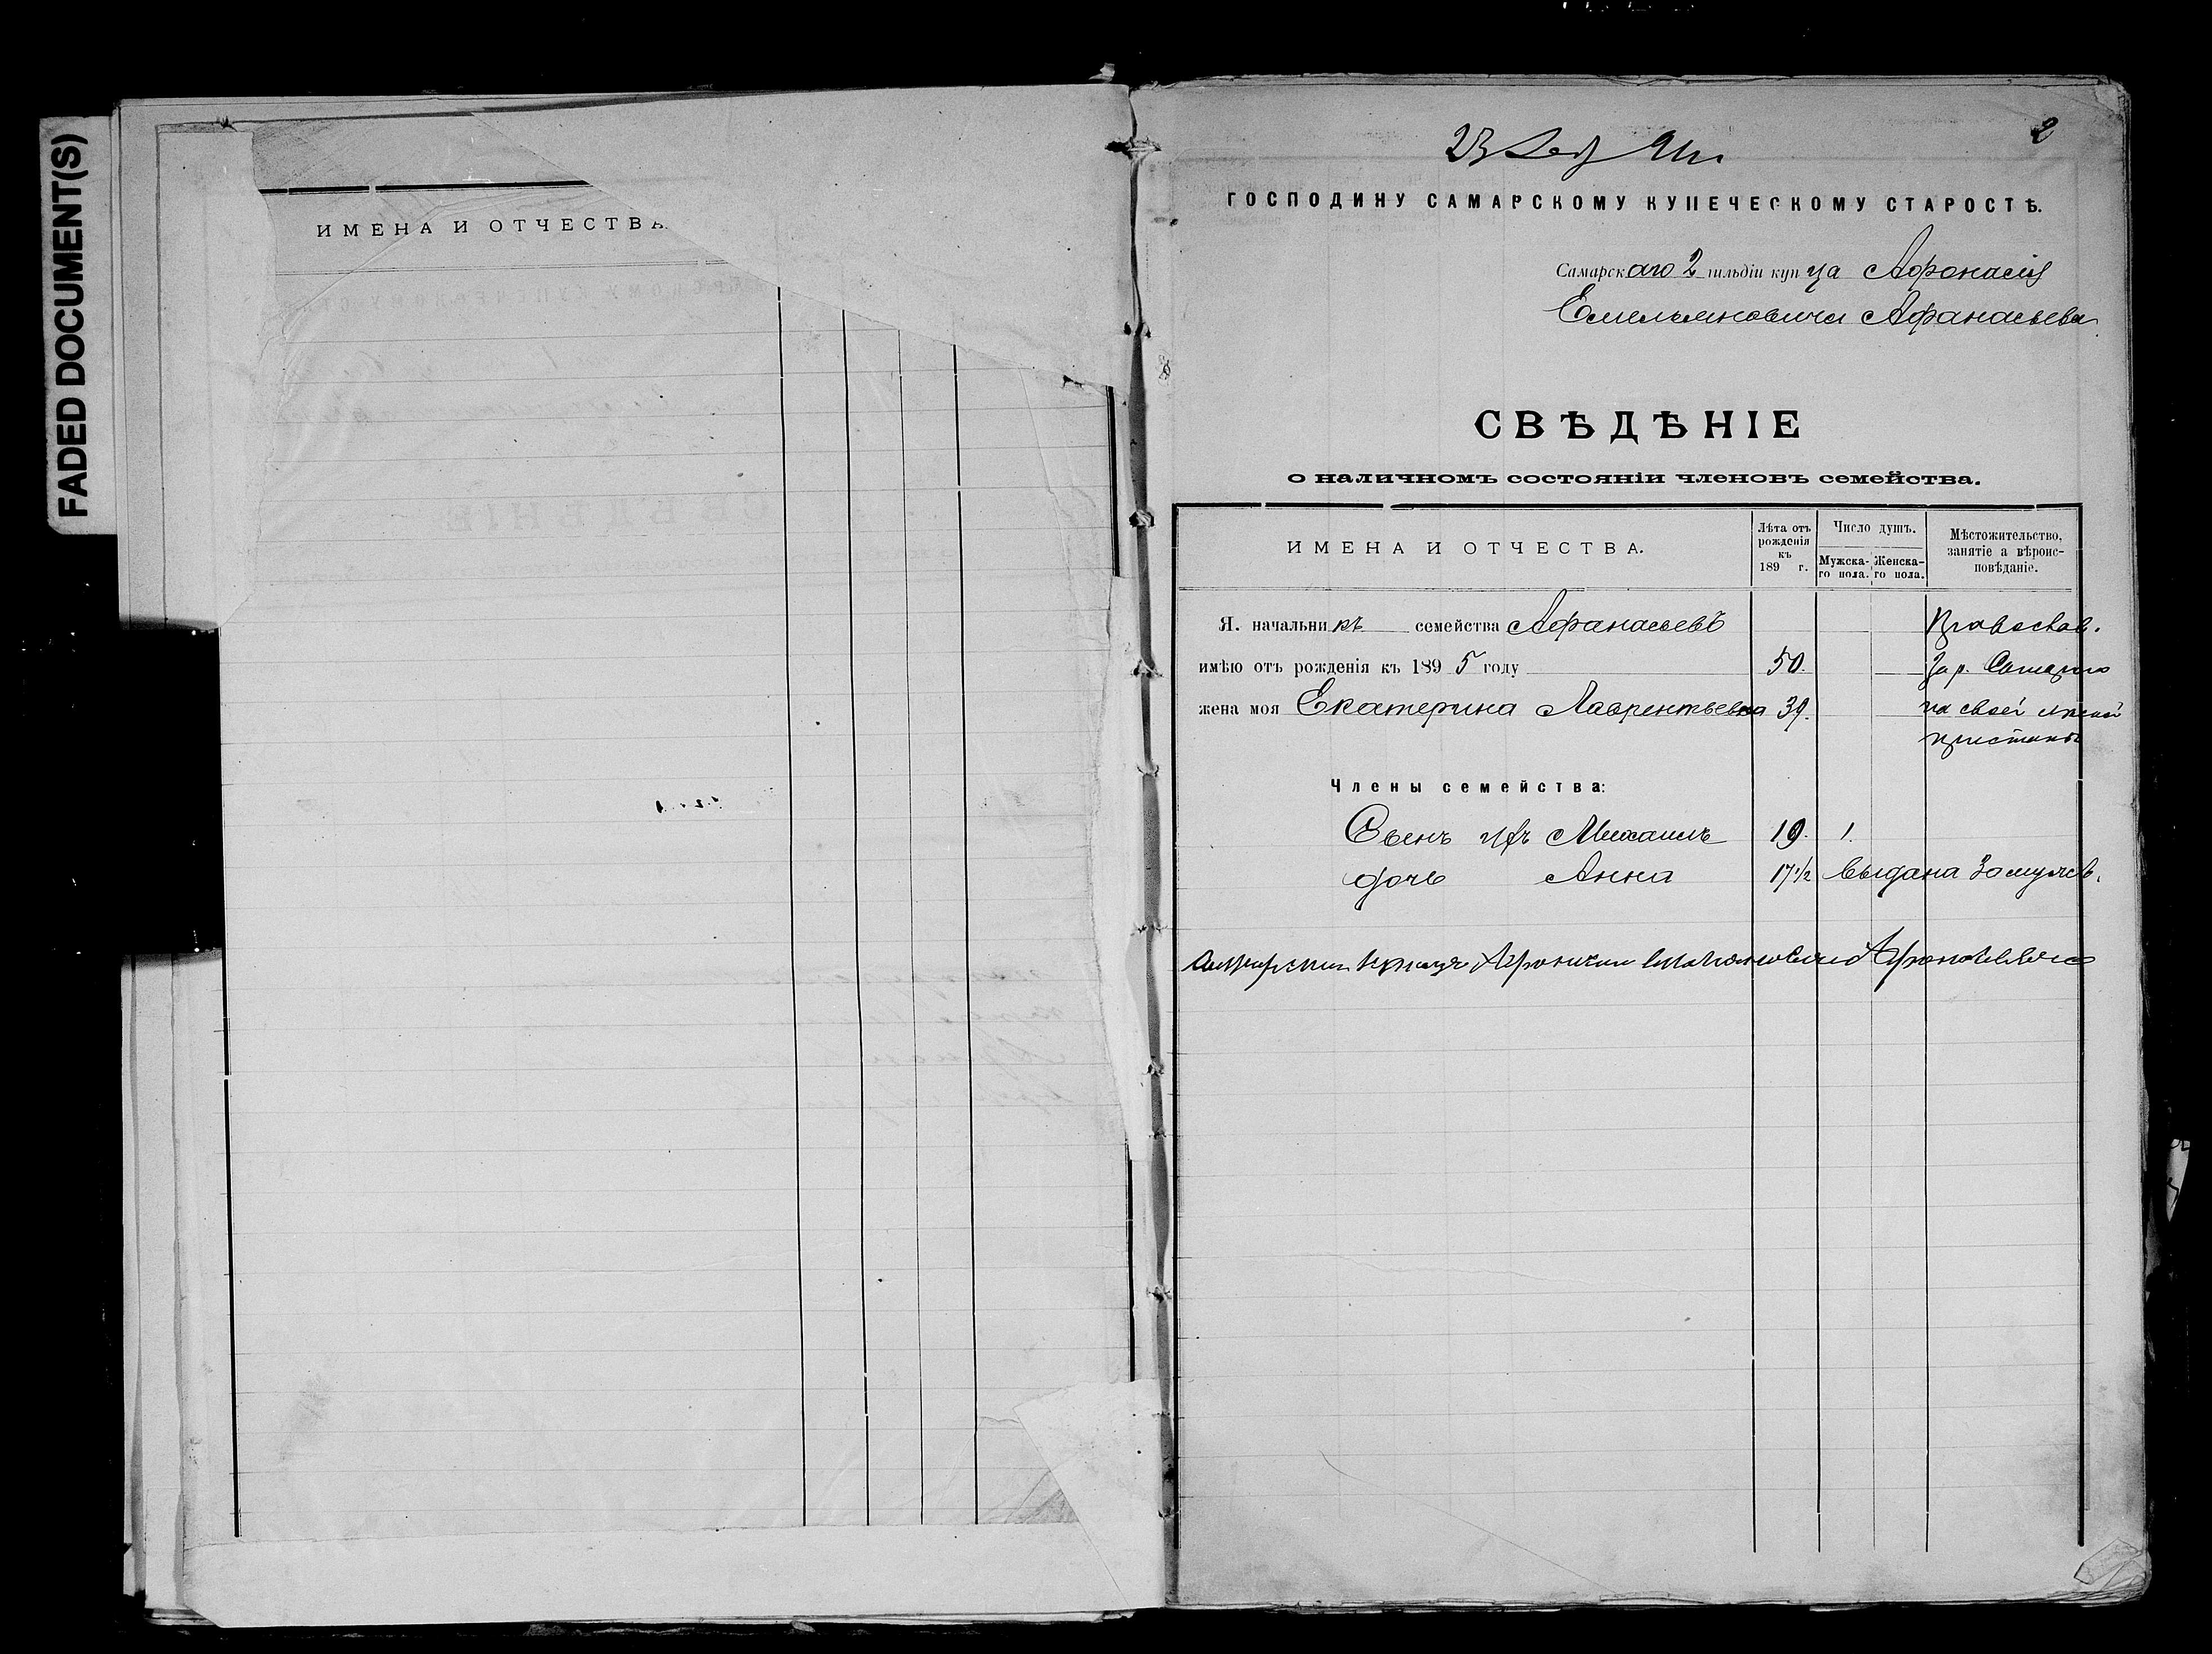 FADED DOCUMENT(S)
ИМЕНА И ОТЧЕСТВА
2
23
ГОСПОДИНУ САМАРСКОМУ КУПЕЧЕСКОМУ СТАРОСТѢ.
Самарскаго 2 гильдіи купца Афонасія
Емельяновича Афанасьева
СВѢДѢНІЕ
о наличномъ состояніи членовъ семейства.
ИМЕНА И ОТЧЕСТВА.
Лѣта отъ рожденія къ 189 г.
Число душъ.
Мужска-го пола.
Женска-го пола.
Мѣстожительство, занятіе а вѣроис-повѣданіе.
Я. начальникъ семейства Афанасьевъ Православ.
имѣю отъ рожденія къ 1895 году 50. За р.
жена моя Екатерина Лаврентьевна 39. на своей
пристани
Члены семейства:
Сынъ ихъ Михаилъ 19. 1.
дочь Анна 17 1/2 выдана Замужъ.